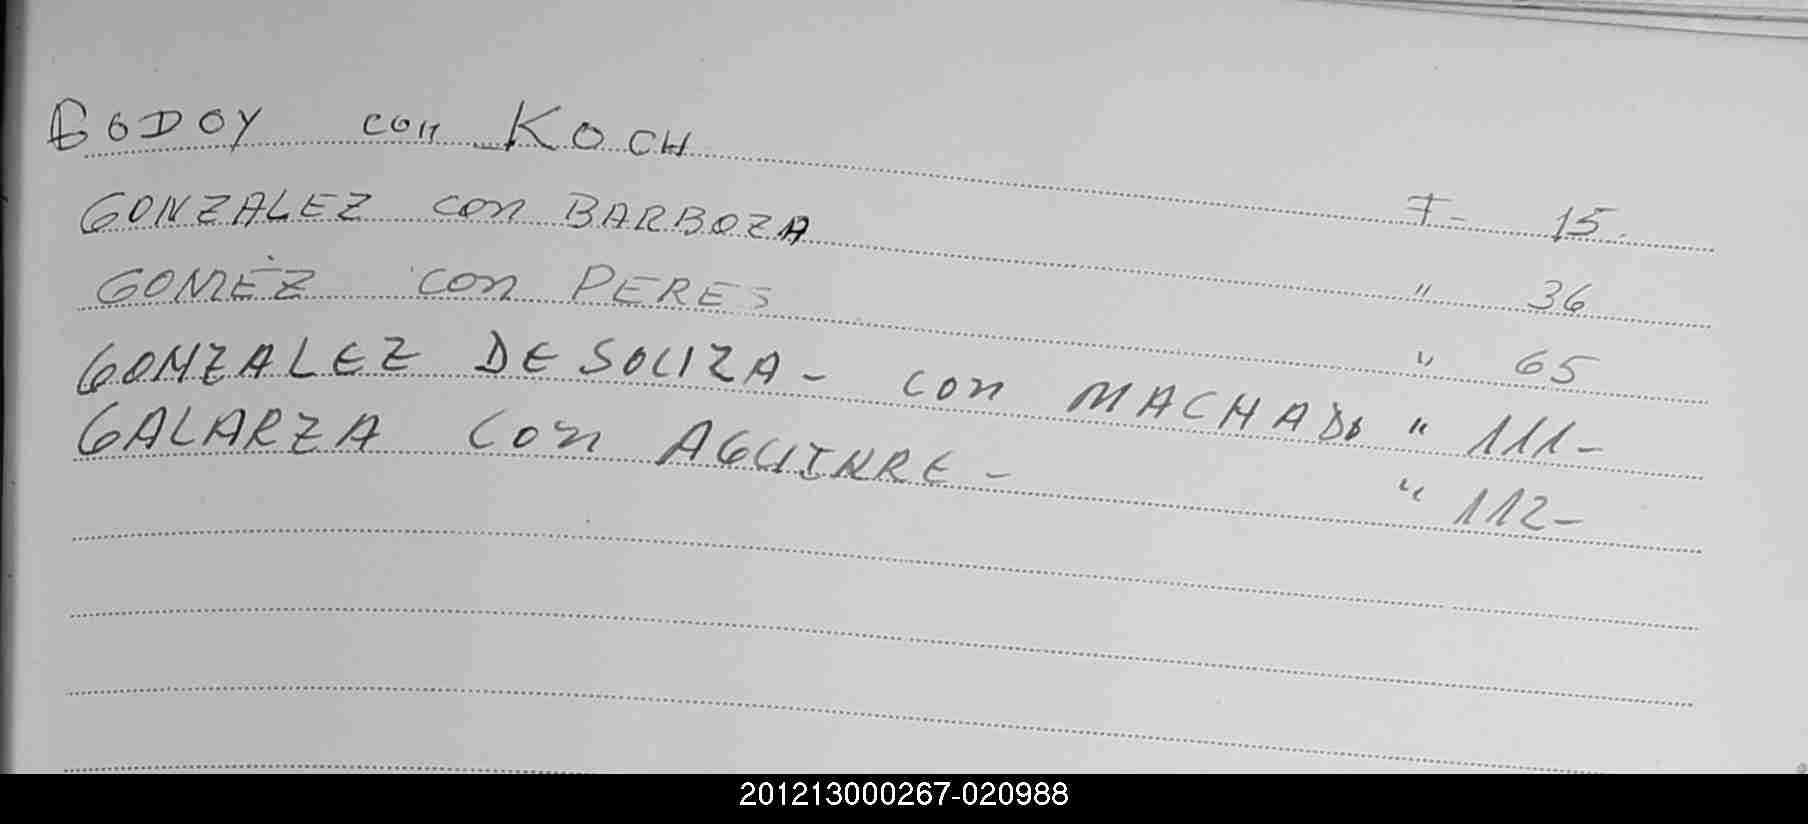 GODOY con KOCH F- 15.
GONZALEZ con BARBOZA " 36
GOMEZ con PERES " 65
GONZALEZ DE SOUZA - con MACHADO " 111-
GALARZA con AGUIRRE - " 112-
201213000267-020988